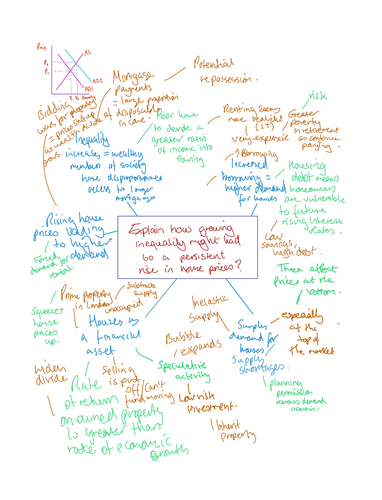 Price
AS
P₁
P
AD2
AD1
Mortgage
Payments
= large proportion
of disposable
income
Potential
repossession.
Bidding
wars for property
= prices
Inequality
increases = wealthy
number of society
have disproportionate
access to larger
mortgages
Poor have
to devote a
greater ratio
of income into
saving
Renting seems
more realistic
(ST)
very expensive
risk
Greater
Poverty
in retirement
as continue
paying.
Borrowing
Increased
borrowing =
higher demand
for houses
Housing
debt means
homeowners
are vulnerable
to future
rising interest
rates.
Low
savings,
high debt.
Rising house
prices leading
to higher
demand
Forced
demand for
rental
Squeezes
house
prices
up.
Explain how growing
inequality might lead
to a persistent
rise in house prices?
These affect
price at the
bottom.
especially
at the
top of
the market
Prime property
in London
unoccupied
Subtracts
supply
Houses as
a financial
asset
Inelastic
Supply
Bubble
expands
Surplus
demand for
houses
Supply
shortages.
planning
permission
Speculative
activity
Low risk
investment.
Inherit
property
Selling
is put
off/Can't
fund moving
widen
divide
Rate
of return
on owned property
is greater than
rate of economic
growth